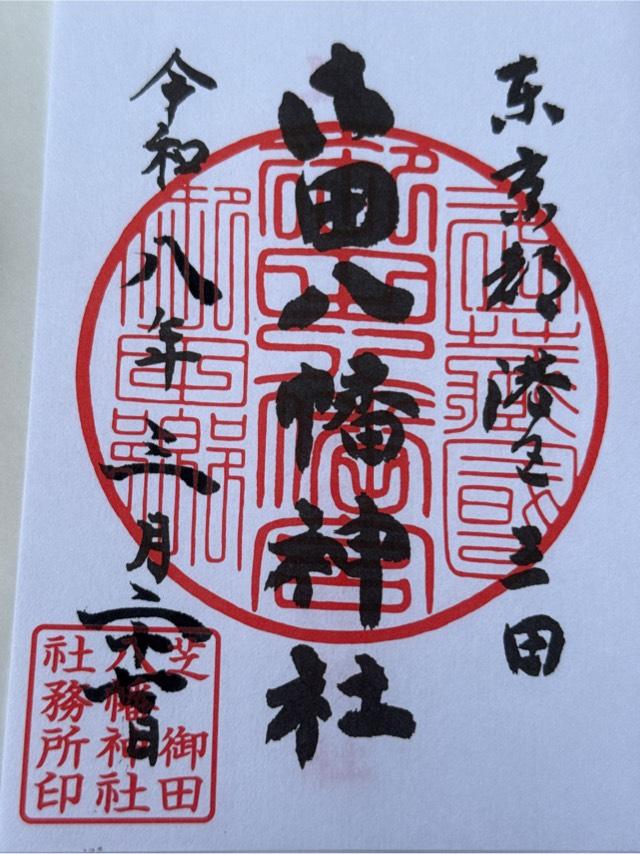 東京都港区三田
御田八幡神社
令和八年三月二十日
武藏國
芝御田
八幡神社
社務所印